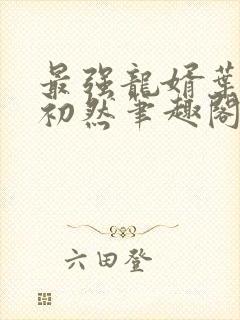 最强龍婿葉
初然筆趣閣
六田登